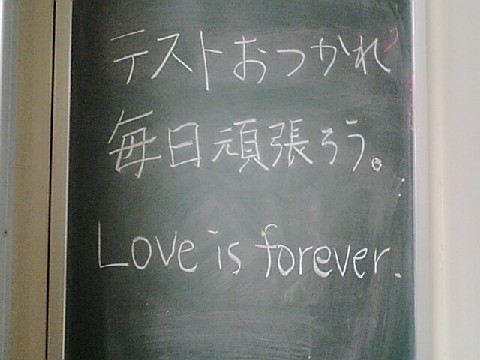 テストおつかれ
毎日頑張ろう。
Love is forever.